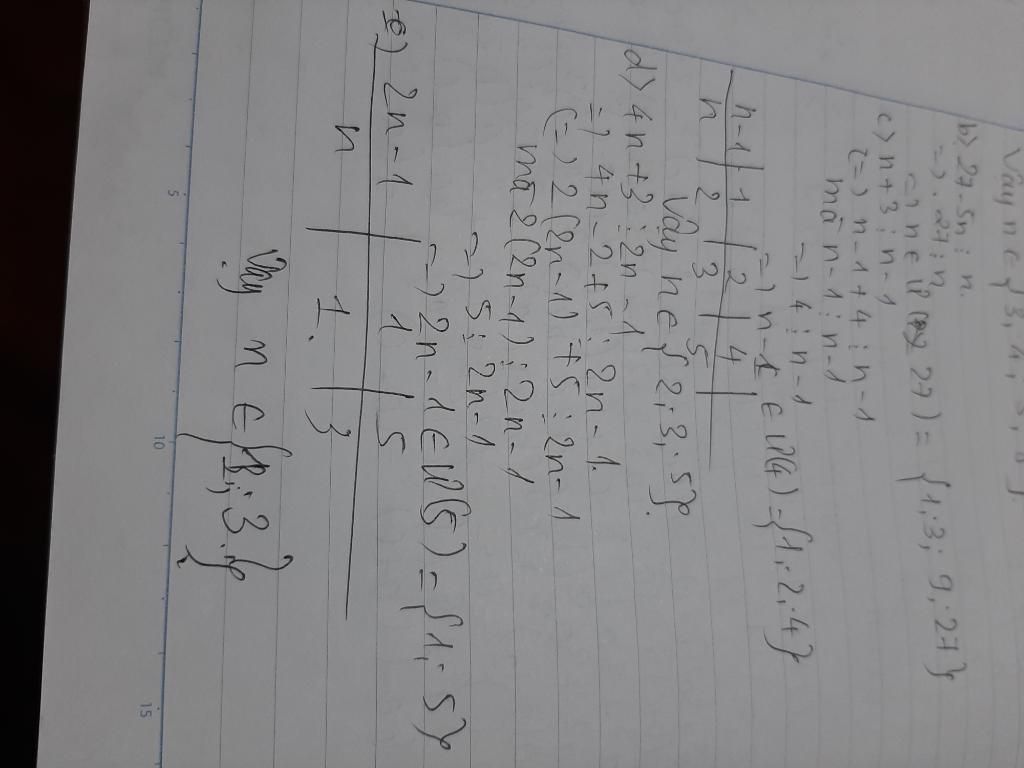 Vậy n ∈ {3, 4,
b) 27 - 5n ⋮ n.
=) 27 ⋮ n
=) n ∈ Ư( 27) = {1, 3; 9, 27}
c) n + 3 ⋮ n - 1
(=) n - 1 + 4 ⋮ n - 1
mà n - 1 ⋮ n - 1
=) 4 ⋮ n - 1
=) n - 1 ∈ Ư(4) = {1, 2, 4}
n - 1 | 1 | 2 | 4
n | 2 | 3 | 5
Vậy n ∈ {2; 3, 5}.
d) 4n + 3 ⋮ 2n - 1
=) 4n - 2 + 5 ⋮ 2n - 1.
(=) 2(2n - 1) + 5 ⋮ 2n - 1
mà 2(2n - 1) ⋮ 2n - 1
=) 5 ⋮ 2n - 1
=) 2n - 1 ∈ Ư(5) = {1; 5}
e) 2n - 1 | 1 | 5
n | 1. | 3
Vậy n ∈ {1; 3}